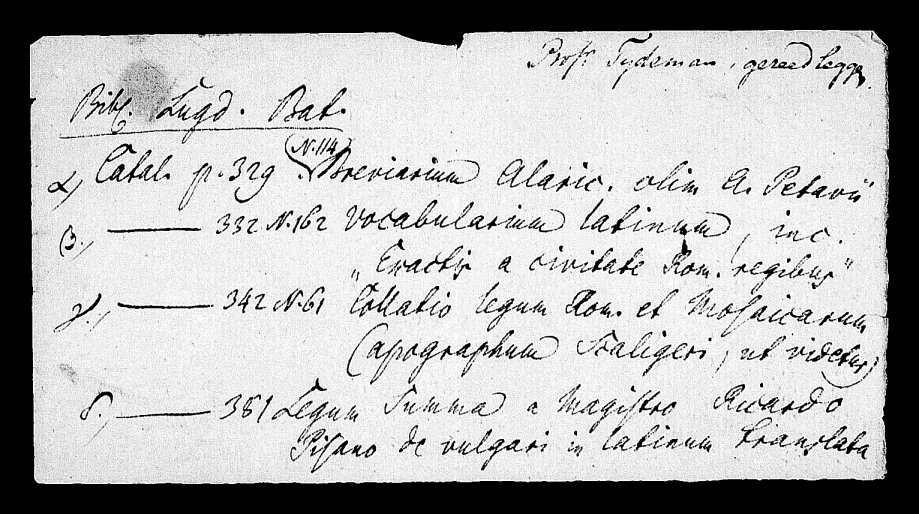 Profr Tydeman, gereed legge.
Bibl. Lugd. Bat.
α) Catal. p. 329. N. 114 Breviarium Alaric. olim A. Petavii
β.) —— 332 N. 162 Vocabularium latinum, inc.
„Exactis a civitate Rom. regibus"
γ.) —— 342 N. 61 Collatio legum Rom. et Mosaicarum
(apographum Scaligeri, ut videtur)
δ.) —— 381 Legum Summa a Magistro Ricardo
Pisano de vulgari in latinum translata